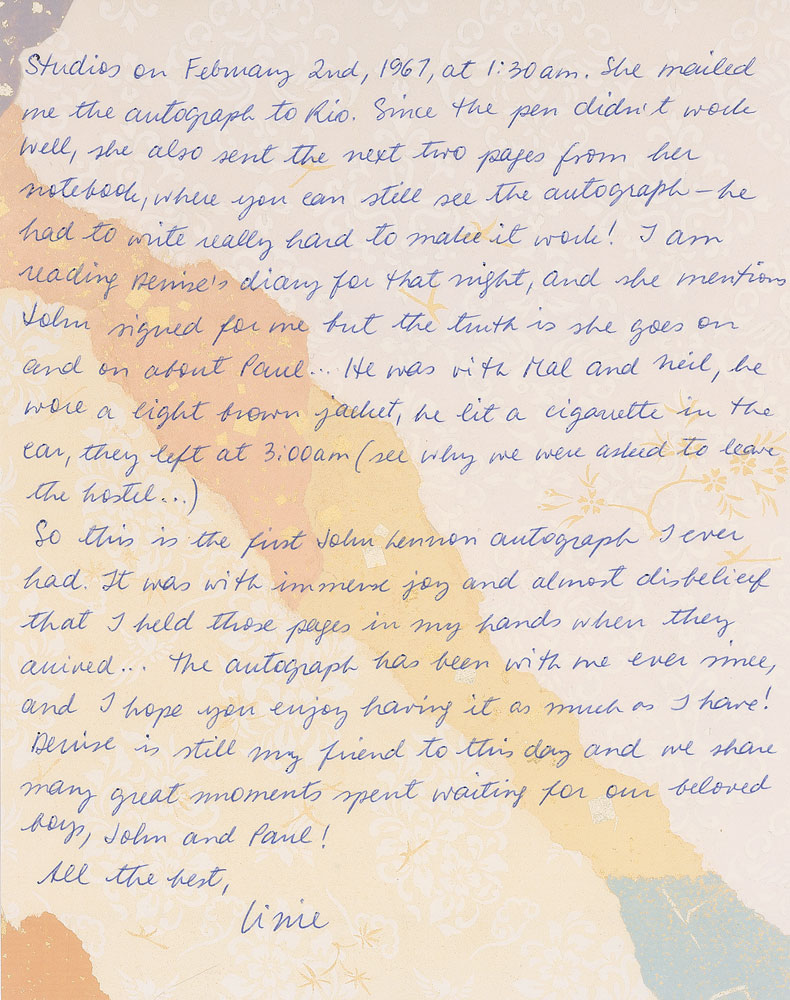 Studios on February 2nd, 1967, at 1:30am. She mailed
me the autograph to Rio. Since the pen didn't work
well, she also sent the next two pages from her
notebook, where you can still see the autograph – he
had to write really hard to make it work! I am
reading Denise's diary for that night, and she mentions
John signed for me but the truth is she goes on
and on about Paul... He was with Mal and Neil, he
wore a light brown jacket, he lit a cigarette in the
car, they left at 3:00am (see why we were asked to leave
the hostel...)
So this is the first John Lennon autograph I ever
had. It was with immense joy and almost disbelief
that I held those pages in my hands when they
arrived... The autograph has been with me ever since,
and I hope you enjoy having it as much as I have!
Denise is still my friend to this day and we share
many great moments spent waiting for our beloved
boys, John and Paul!
All the best,